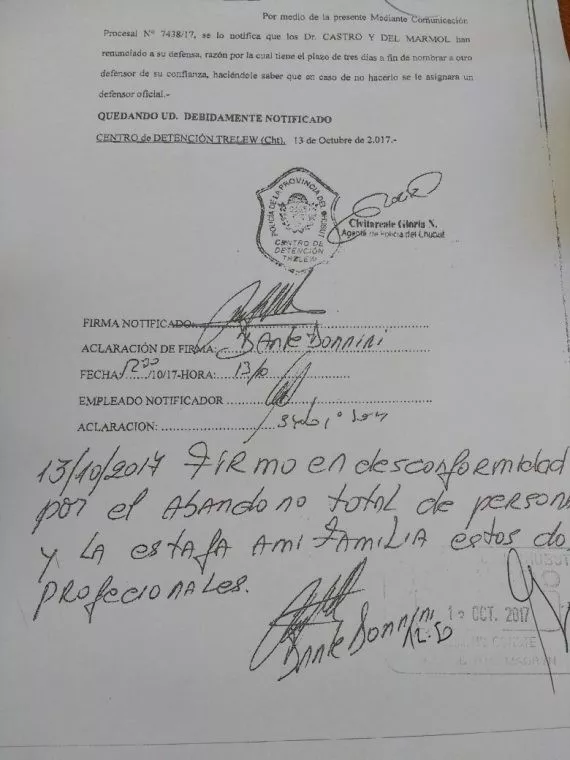 Por medio de la presente Mediante Comunicación
Procesal N° 7438/17, se lo notifica que los Dr. CASTRO Y DEL MARMOL han
renunciado a su defensa, razón por la cual tiene el plazo de tres días a fin de nombrar a otro
defensor de su confianza, haciéndole saber que en caso de no hacerlo se le asignara un
defensor oficial.-
QUEDANDO UD. DEBIDAMENTE NOTIFICADO
CENTRO de DETENCIÓN TRELEW (Cht), 13 de Octubre de 2.017.-
POLICIA DE LA PROVINCIA DEL CHUBUT
CENTRO DE
DETENCIÓN
TRELEW
Civitareale Gloria N.
Agente de Policia del Chubut
FIRMA NOTIFICADO:
ACLARACIÓN DE FIRMA: DAnte Donnini
FECHA /10/17-HORA: 13/0
EMPLEADO NOTIFICADOR
ACLARACION:
13/10/2017 FIRMO EN desconformidad
por el ABANDONO TOTAL de person
Y LA estafa AMI FAMILIA estos do
profecionales.
DAnte Donnini
OCT. 2017
12:50